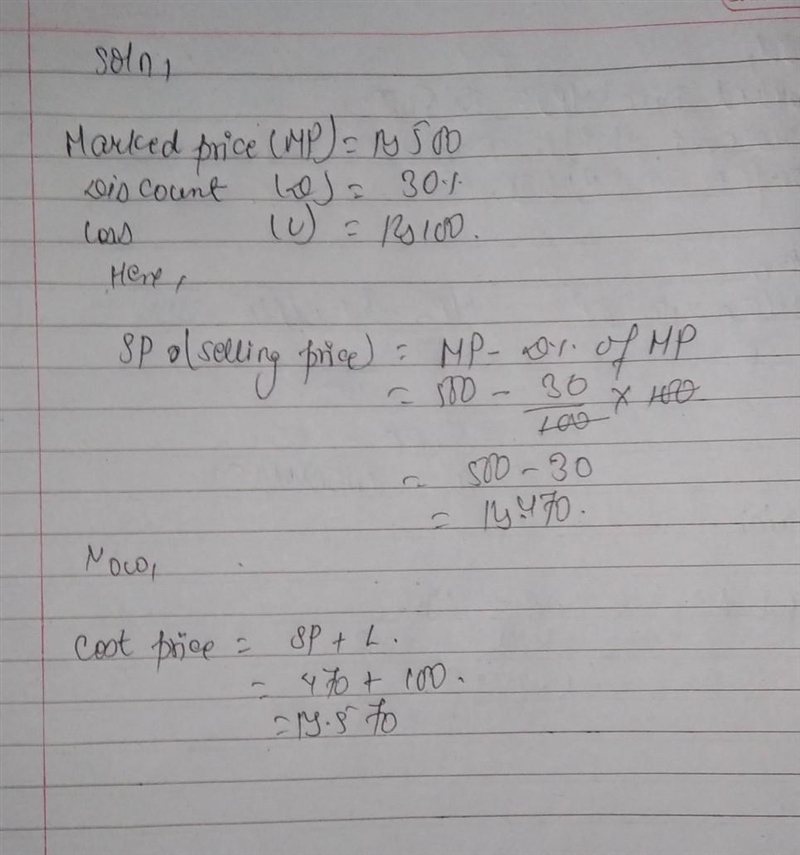 Soln,
Marked price (MP) = Rs 500
Discount (D) = 30%
Loss (L) = Rs 100.
Here,
SP (selling price) = MP - D% of MP
= 500 - 30/100 × 100
= 500 - 30
= Rs 470.
Now,
Cost price = SP + L.
= 470 + 100.
= Rs. 570